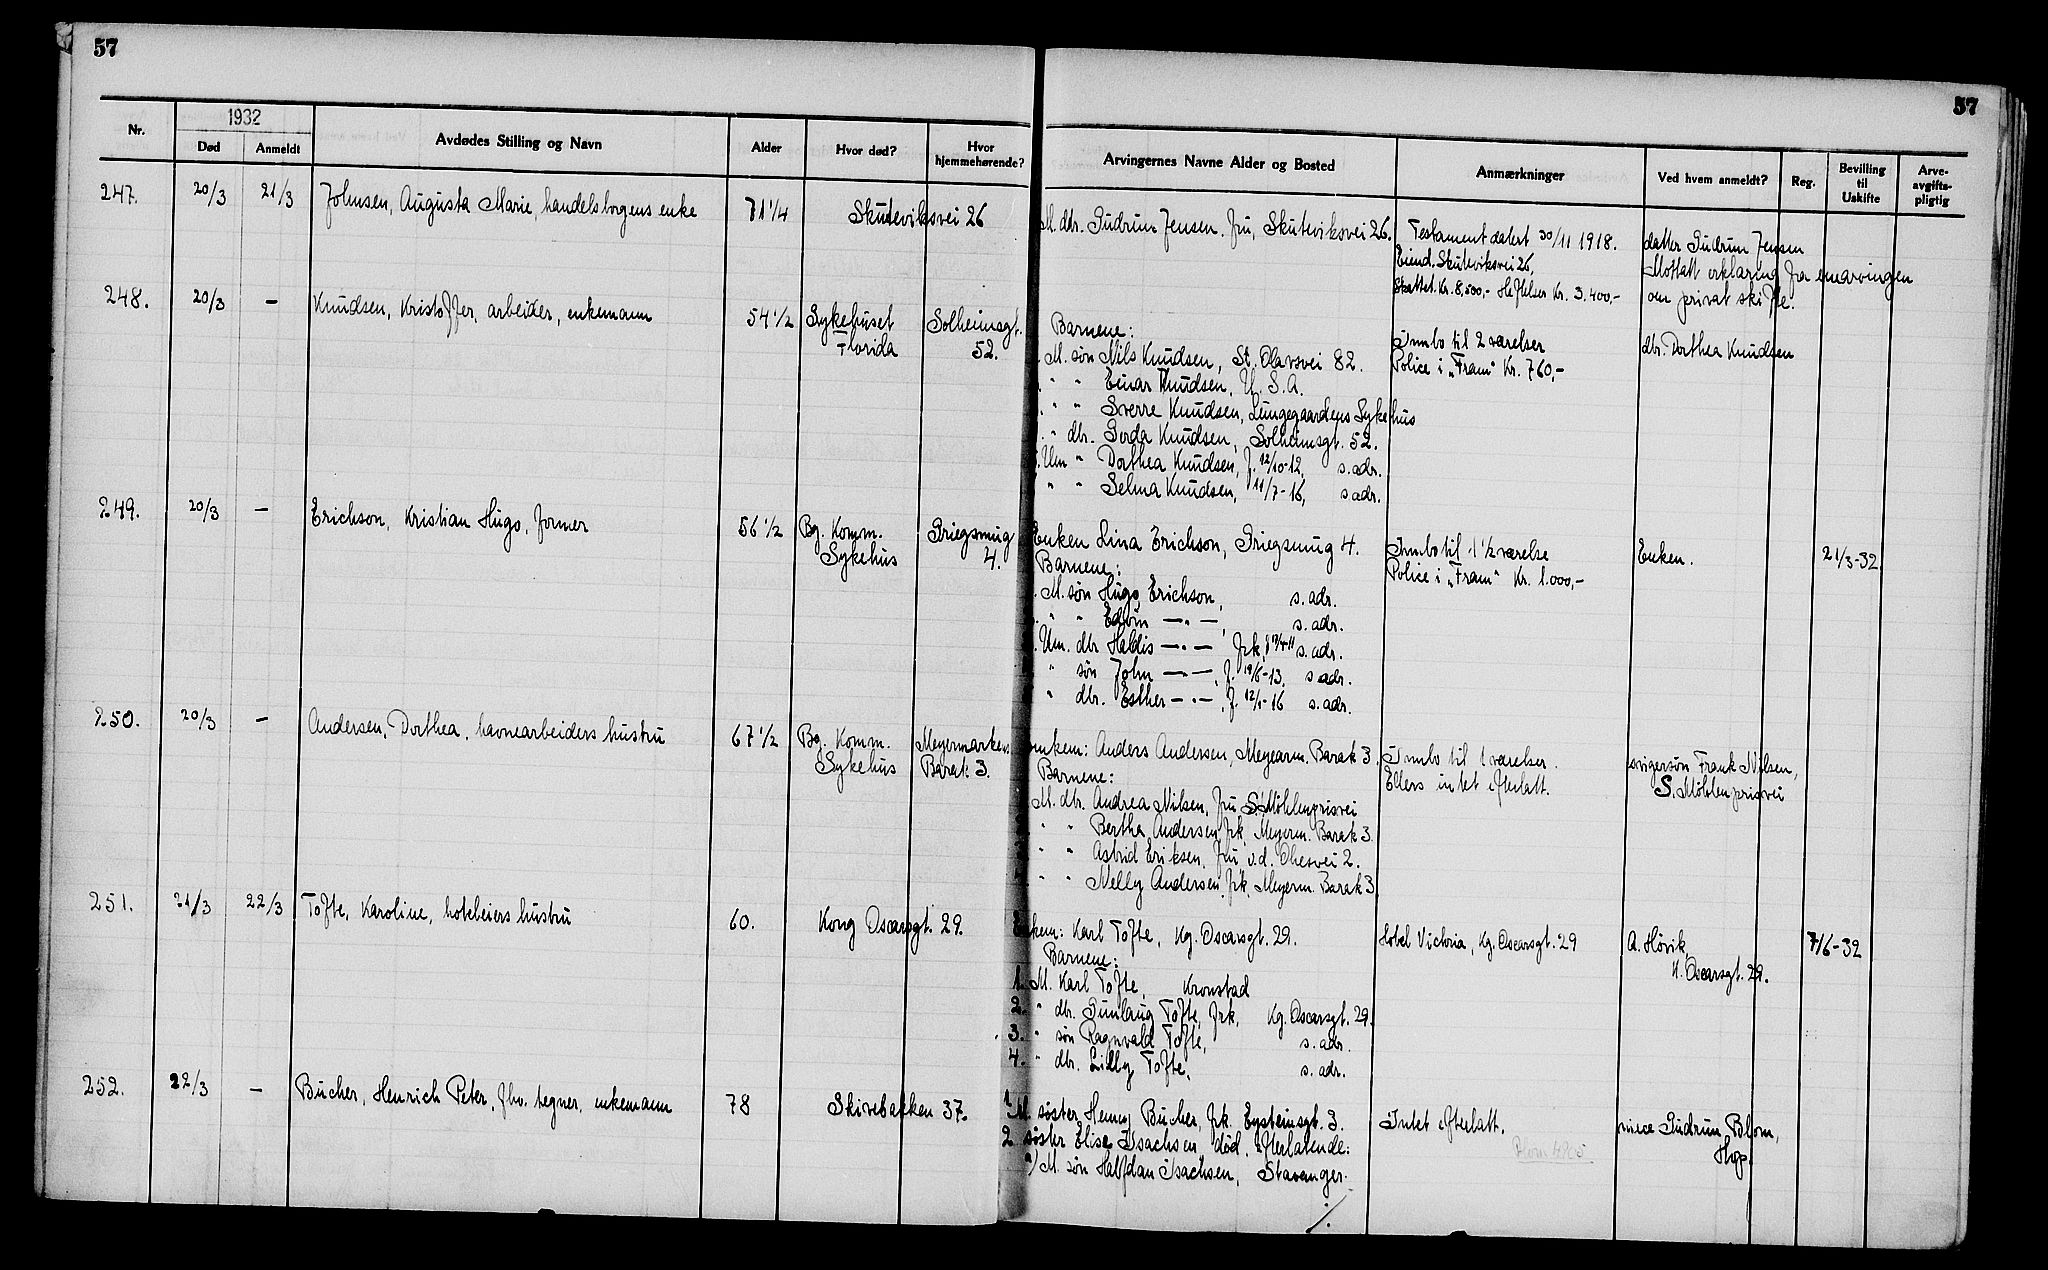 57
57
Nr.
1932
Død
Anmeldt
Avdødes Stilling og Navn
Alder
Hvor død?
Hvor hjemmehørende?
Arvingernes Navne Alder og Bosted
Anmærkninger
Ved hvem anmeldt?
Reg.
Bevilling til Uskifte
Arve-avgifts-pligtig
247. 20/3 21/3 Johnsen, Augusta Marie, handelsborgers enke 71 1/4 Skuteviksvei 26
M. dtr. Gudrun Jensen, fru, Skuteviksvei 26.
Testament datert 30/11 1918.
Eiend. Skuteviksvei 26,
Skattet. Kr. 8,500,- Heftelser Kr. 3.400,-
datter Gudrun Jensen
Mottatt erklæring fra enearvingen
om privat skifte.
248. 20/3 — Knudsen, Kristoffer, arbeider, enkemann 54 1/2 Sykehuset Florida
Solheimsgt. 52.
Barnene:
M. søn Nils Knudsen, St. Olavsvei 82.
" " Einar Knudsen, U.S.A.
" " Sverre Knudsen, Lungegaardens Sykehus
" dtr. Gerda Knudsen, Solheimsgt. 52.
Um " Dorthea Knudsen, f. 12/10-12, s. adr.
" " Selma Knudsen, 11/7-16, s adr.
Innbo til 2 værelser
Police i "Fram" Kr. 760,-
dtr. Dorthea Knudsen
249. 20/3 — Erichson, Kristian Hugo, former 56 1/2 Bg. Komm. Sykehus
Griegsmug 4.
Enken Lina Erichson, Griegsmug 4.
Barnene:
M. søn Hugo Erichson, s. adr.
" " Edvin —"—, s. adr.
Um. dtr Haldis —"— frk, s. adr.
" søn John —"—, f. 19/6-13, s adr.
" dtr. Esther —"—, f. 12/1-16 s. adr.
Innbo til 1 1/2 værelse
Police i "Fram" Kr. 1.000,-
Enken.
21/3-32
250. 20/3 — Andersen, Dorthea, havnearbeiders hustru 67 1/2 Bg. Komm. Sykehus
Meyermarken Barak 3.
enkem: Anders Andersen, Meyerm. Barak 3.
Barnene:
M. dtr. Andrea Nilsen, fru S. Möhlenprisvei
" " Bertha Andersen frk, Meyerm. Barak 3.
" " Astrid Eriksen, fru v.d. Ohesvei 2.
" " Nelly Andersen, frk, Meyerm. Barak 3
Innbo til 1 værelser.
Ellers intet efterlatt.
svigersøn Frank Nilsen,
S. Möhlenprisvei
251. 21/3 22/3 Tofte, Karoline, hoteleiers hustru 60. Kong Oscarsgt. 29.
Enkem: Karl Tofte, Kg. Oscarsgt. 29.
Barnene:
1. M. Karl Tofte, Kronstad
2. " dtr. Gunlaug Tofte, frk, Kg. Oscarsgt. 29.
3. " søn Ragnvald Tofte, s. adr.
4. " dtr. Lilly Tofte, s. adr.
Hotel Victoria, Kg. Oscarsgt. 29
A. Høvik,
K. Oscarsgt. 29.
7/6-32
252. 22/3 — Bucher, Henrich Peter, fhv. tegner, enkemann 78 Skivebakken 37.
1. M. søster Henny Bucher, frk. Eysteinsgt. 3.
2 søster Elise Isachsen død, efterlatende:
a) M. søn Halfdan Isachsen, Stavanger.
Intet efterlatt.
niece Gudrun Blom,
Hop.
./.